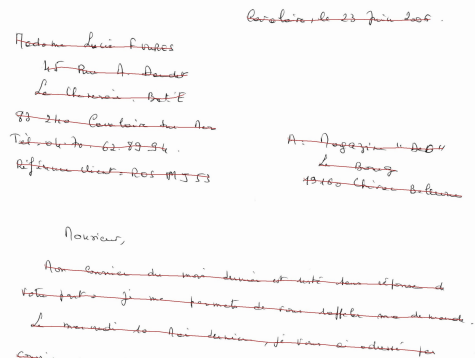 Cavalaire, le 23 Juin 2006.
Madame Lucie FOURES
45 Rue A. Daudet
La Chaneraie. Bat: E
83 240 Cavalaire sur Mer
Tél. 04 70 63 89 94.
Référence client. ROS MJ 53
A. Magazine "D&G"
Le Bourg
19160 Chirac Bellevue
Monsieur,
Mon courrier du mois dernier est resté sans réponse de
votre part. Je me permets de vous rappeler ma demande.
Le mercredi 10 Mai dernier, je vous ai adressé par